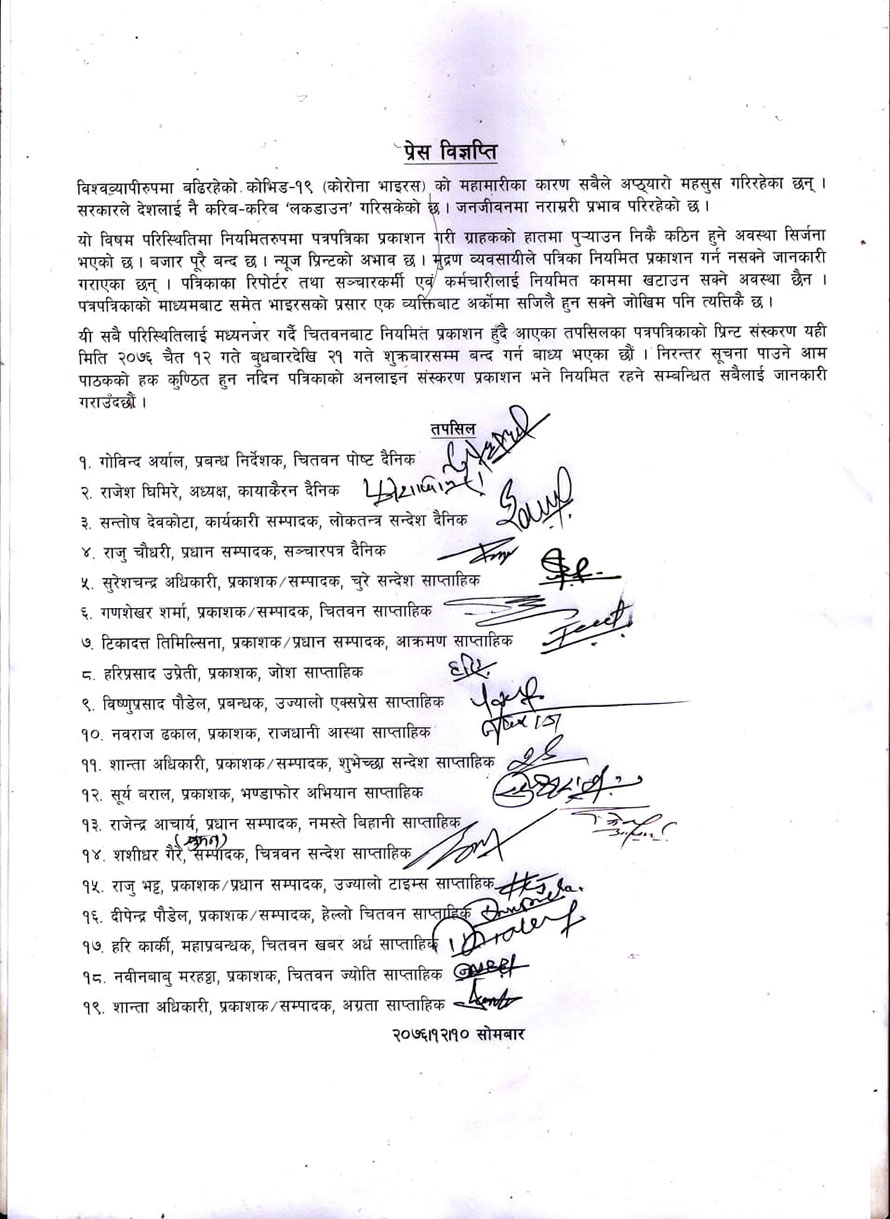 प्रेस विज्ञप्ति
विश्वव्यापीरुपमा बढिरहेको कोभिड-१९ (कोरोना भाइरस) को महामारीका कारण सबैले अप्ठ्यारो महसुस गरिरहेका छन् ।
सरकारले देशलाई नै करिब-करिब ‘लकडाउन’ गरिसकेको छ । जनजीवनमा नराम्ररी प्रभाव परिरहेको छ ।
यो विषम परिस्थितिमा नियमितरुपमा पत्रपत्रिका प्रकाशन गरी ग्राहकको हातमा पुऱ्याउन निकै कठिन हुने अवस्था सिर्जना
भएको छ । बजार पूरै बन्द छ । न्यूज प्रिन्टको अभाव छ । मुद्रण व्यवसायीले पत्रिका नियमित प्रकाशन गर्न नसक्ने जानकारी
गराएका छन् । पत्रिकाका रिपोर्टर तथा सञ्चारकर्मी एवं कर्मचारीलाई नियमित काममा खटाउन सक्ने अवस्था छैन ।
पत्रपत्रिकाको माध्यमबाट समेत भाइरसको प्रसार एक व्यक्तिबाट अर्कोमा सजिलै हुन सक्ने जोखिम पनि त्यत्तिकै छ ।
यी सबै परिस्थितिलाई मध्यनजर गर्दै चितवनबाट नियमित प्रकाशन हुँदै आएका तपसिलका पत्रपत्रिकाको प्रिन्ट संस्करण यही
मिति २०७६ चैत १२ गते बुधबारदेखि २१ गते शुक्रबारसम्म बन्द गर्न बाध्य भएका छौं । निरन्तर सूचना पाउने आम
पाठकको हक कुण्ठित हुन नदिन पत्रिकाको अनलाइन संस्करण प्रकाशन भने नियमित रहने सम्बन्धित सबैलाई जानकारी
गराउँदछौं ।
तपसिल
१. गोविन्द अर्याल, प्रबन्ध निर्देशक, चितवन पोष्ट दैनिक
२. राजेश घिमिरे, अध्यक्ष, कायाकैरन दैनिक
३. सन्तोष देवकोटा, कार्यकारी सम्पादक, लोकतन्त्र सन्देश दैनिक
४. राजु चौधरी, प्रधान सम्पादक, सञ्चारपत्र दैनिक
५. सुरेशचन्द्र अधिकारी, प्रकाशक/सम्पादक, चुरे सन्देश साप्ताहिक
६. गणशेखर शर्मा, प्रकाशक/सम्पादक, चितवन साप्ताहिक
७. टिकादत्त तिमिल्सिना, प्रकाशक/प्रधान सम्पादक, आक्रमण साप्ताहिक
८. हरिप्रसाद उप्रेती, प्रकाशक, जोश साप्ताहिक
९. विष्णुप्रसाद पौडेल, प्रबन्धक, उज्यालो एक्सप्रेस साप्ताहिक
१०. नवराज ढकाल, प्रकाशक, राजधानी आस्था साप्ताहिक
११. शान्ता अधिकारी, प्रकाशक/सम्पादक, शुभेच्छा सन्देश साप्ताहिक
१२. सूर्य बराल, प्रकाशक, भण्डाफोर अभियान साप्ताहिक
१३. राजेन्द्र आचार्य, प्रधान सम्पादक, नमस्ते बिहानी साप्ताहिक
१४. शशीधर गैरे, सम्पादक, चित्रवन सन्देश साप्ताहिक
१५. राजु भट्ट, प्रकाशक/प्रधान सम्पादक, उज्यालो टाइम्स साप्ताहिक
१६. दीपेन्द्र पौडेल, प्रकाशक/सम्पादक, हेल्लो चितवन साप्ताहिक
१७. हरि कार्की, महाप्रबन्धक, चितवन खबर अर्ध साप्ताहिक
१८. नवीनबाबु मरहट्टा, प्रकाशक, चितवन ज्योति साप्ताहिक
१९. शान्ता अधिकारी, प्रकाशक/सम्पादक, अग्रता साप्ताहिक
२०७६।१२।१० सोमबार